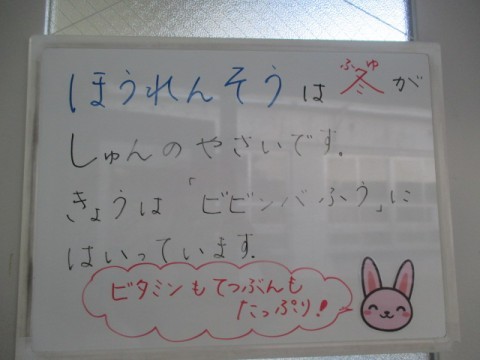 ほうれんそうは冬が
ふゆ
しゅんのやさいです.
きょうは「ビビンバふう」に
はいっています.
ビタミンもてつぶんも
たっぷり!